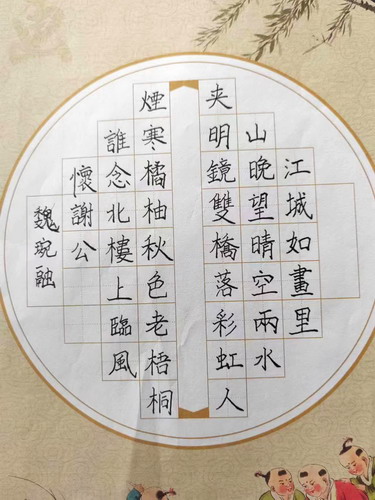 江城如畫里
山晚望晴空兩水
夹明鏡雙橋落彩虹人
煙寒橘柚秋色老梧桐
誰念北樓上臨風
懷謝公
魏琬融